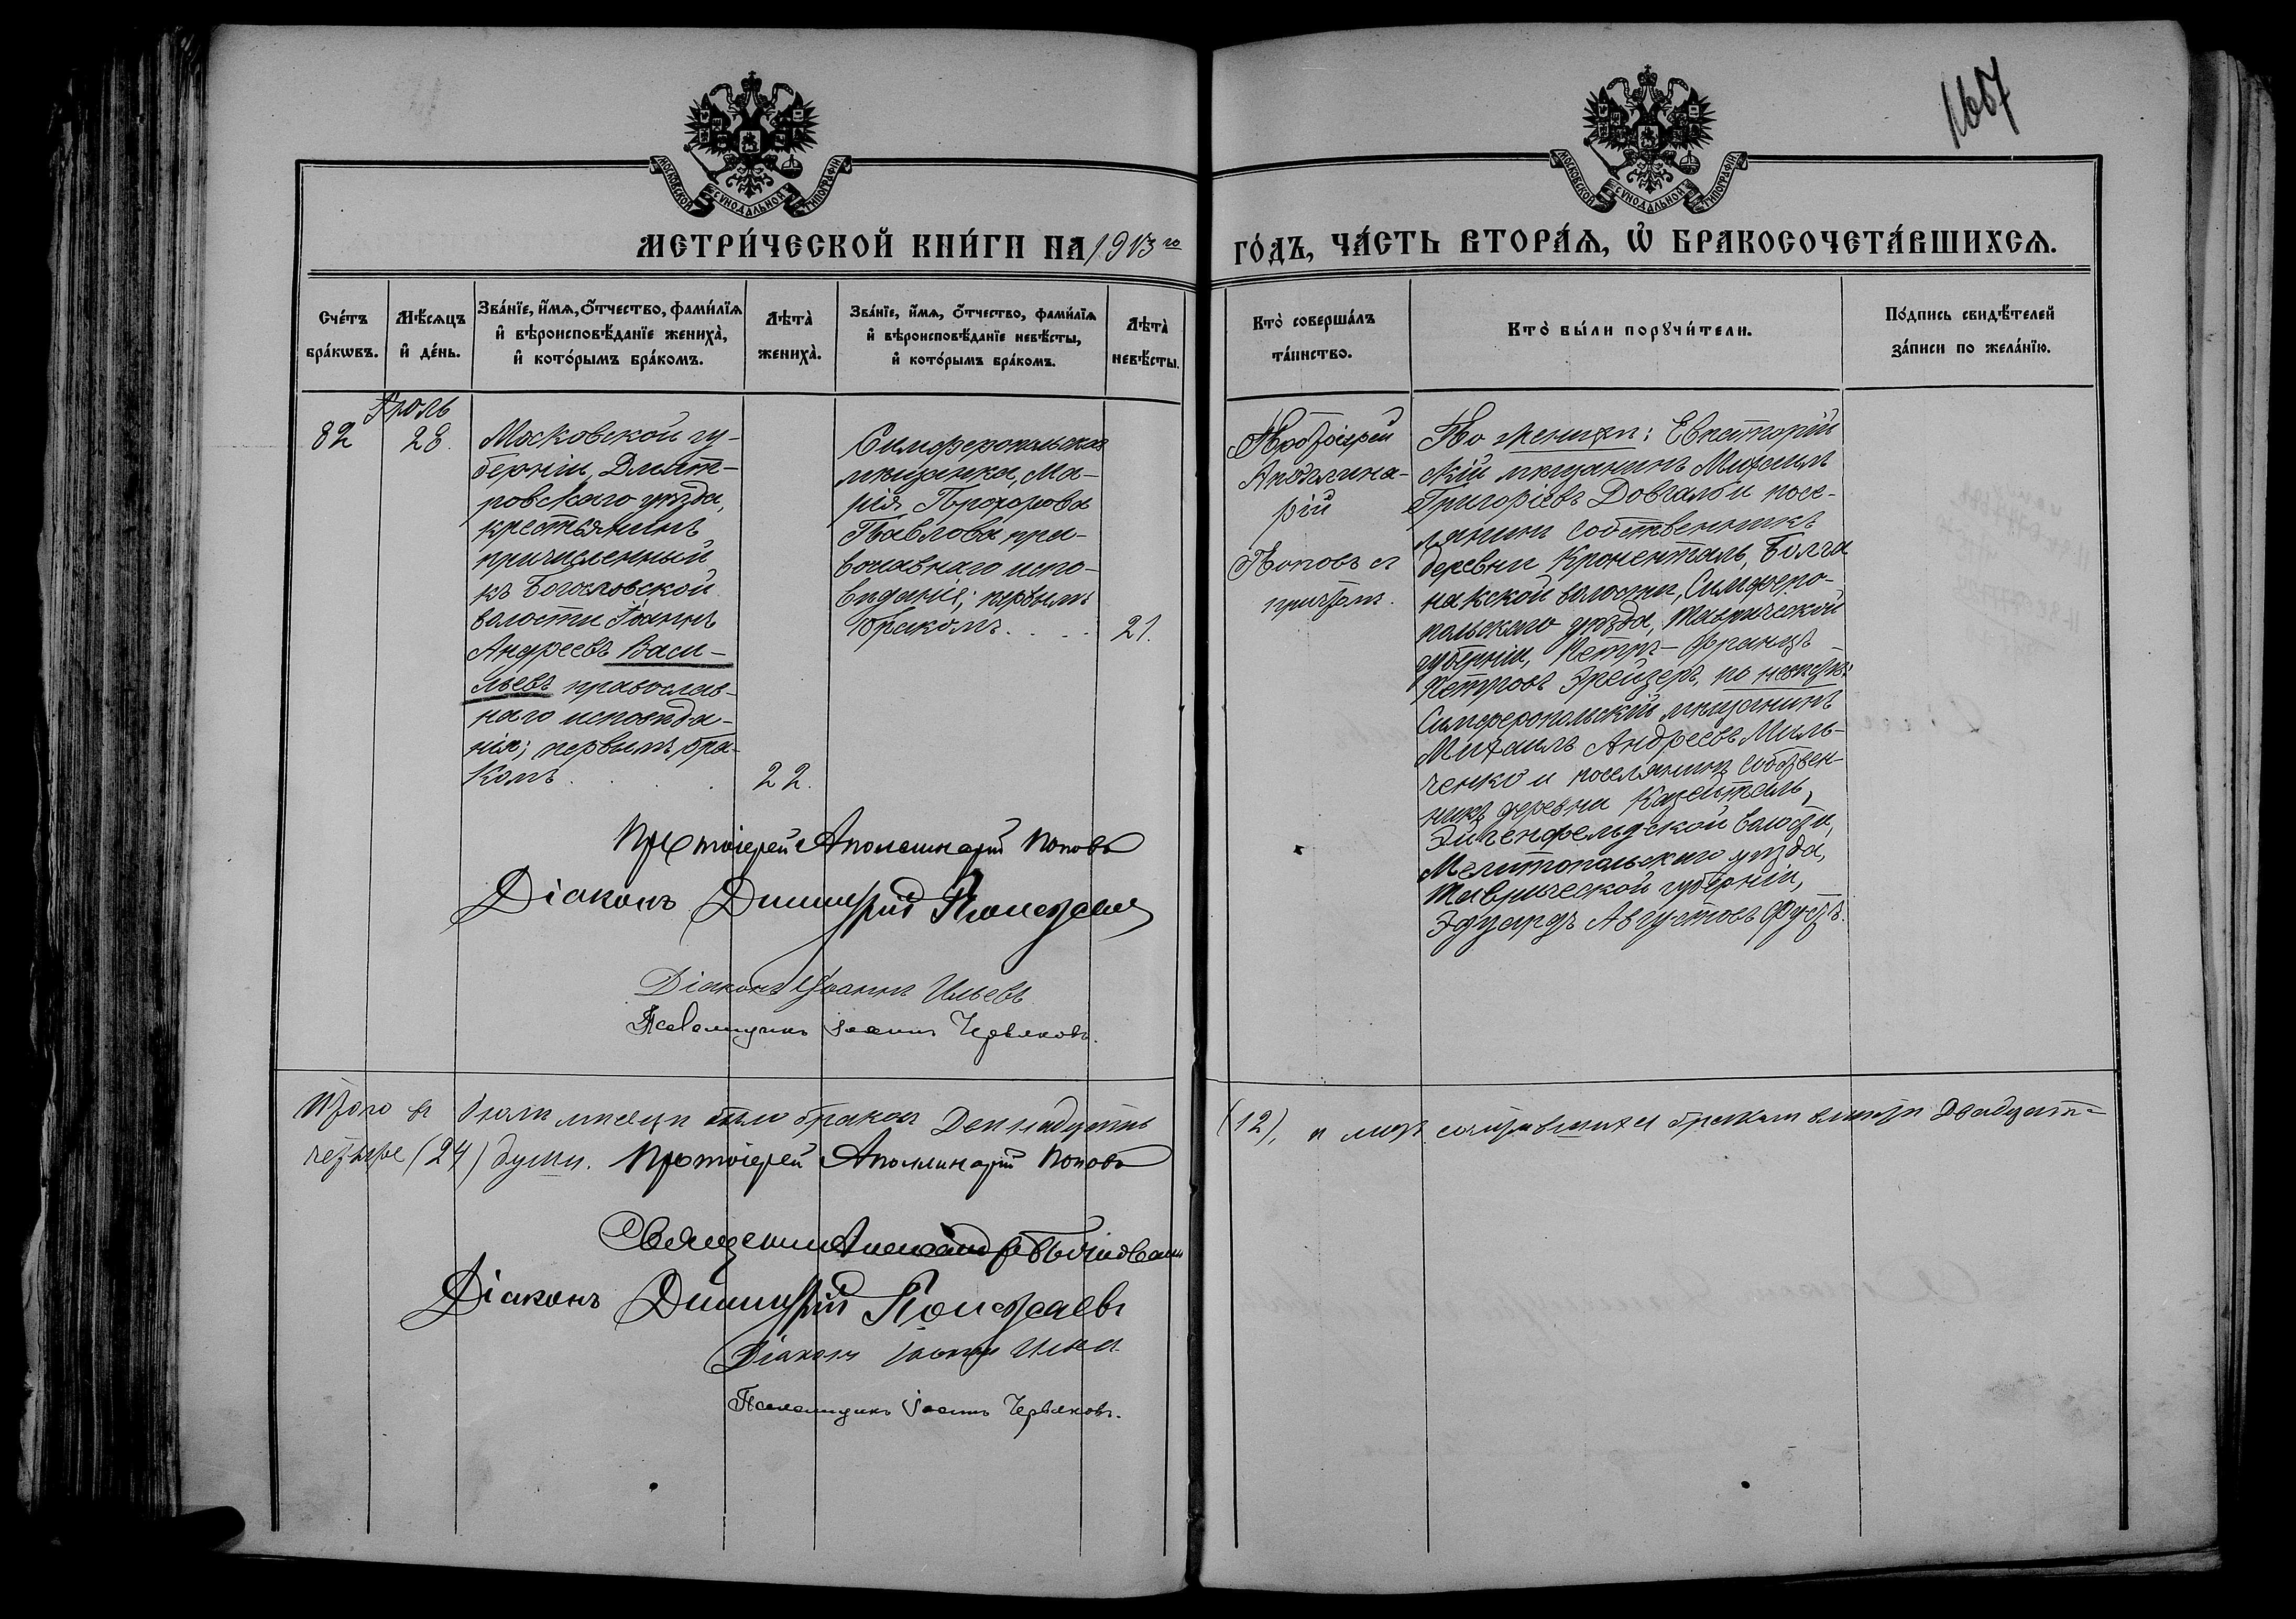 1667
МОСКОВСКОЙ СѴНОДАЛЬНОЙ ТИПОГРАФІИ
МОСКОВСКОЙ СѴНОДАЛЬНОЙ ТИПОГРАФІИ
МЕТРИ́ЧЕСКОЙ КНИ́ГИ НА 1913 го
ГО́ДЪ, ЧА́СТЬ ВТОРА́Ѧ, Ѡ҆ БРАКОСОЧЕТА́ВШИХСѦ.
Сче́тъ
бра́кѡвъ.
Мѣ́сѧцъ
и҆ де́нь.
Зва́нїе, и҆́мѧ, ѻ҆́тчество, фами́лїѧ
и҆ вѣроисповѣ́данїе жениха̀,
и҆ кото́рымъ бра́комъ.
Лѣта̀
жениха̀.
Зва́нїе, и҆́мѧ, ѻ҆́тчество, фами́лїѧ
и҆ вѣроисповѣ́данїе невѣ́сты,
и҆ кото́рымъ бра́комъ.
Лѣта̀
невѣ́сты.
Кто̀ соверша́лъ
та́инство.
Кто̀ бы́ли порꙋчи́тели.
По́дпись свидѣ́телей
за́писи по жела́нїю.
82
28.
Московской гу-
берніи, Дмит-
ровскаго уѣзда,
крестьянинъ
причисленный
къ
волости Іоаннъ
Андреевъ Васи-
льевъ православ-
наго исповѣда-
нія; первымъ бра-
комъ.
22.
Симферопольская
мѣщанка, Ма-
рія Прохорова
Павлова пра-
вославнаго испо-
вѣданія; первымъ
бракомъ.
21.
Протоіерей
Аполлина-
рій
Поповъ съ
причтомъ.
По женихѣ: Евпаторій
скій мѣщанинъ Михаилъ
Григоріевъ Довгаль и посе-
лянинъ собственникъ
деревни Кроненталь, Булга
накской волости, Симферо-
польскаго уѣзда, Таврической
губерніи, Петръ-Францъ
Петровъ по невѣстѣ:
Симферопольскій мѣщанинъ
Михаилъ Андреевъ Миль-
ченко и поселянинъ собствен-
никъ деревни
Эйгенфельдской волости,
Мелитопольскаго уѣзда,
Таврической губерніи,
Эдуардъ Августовъ Фустъ.
Протоіерей Аполлинарій Поповъ
Діаконъ Димитрій
Діаконъ Іоаннъ Ильевъ
Псаломщикъ Іоаннъ Червяковъ.
Итого въ Іюлѣ мѣсяцѣ было браковъ Двенадцать
(12), и лицъ сочетавшихся бракомъ Двадцать
четыре (24) души. Протоіерей Аполлинарій Поповъ
Священникъ Александръ
Діаконъ Димитрій
Діаконъ Іоаннъ
Псаломщикъ Іоаннъ Червяковъ.